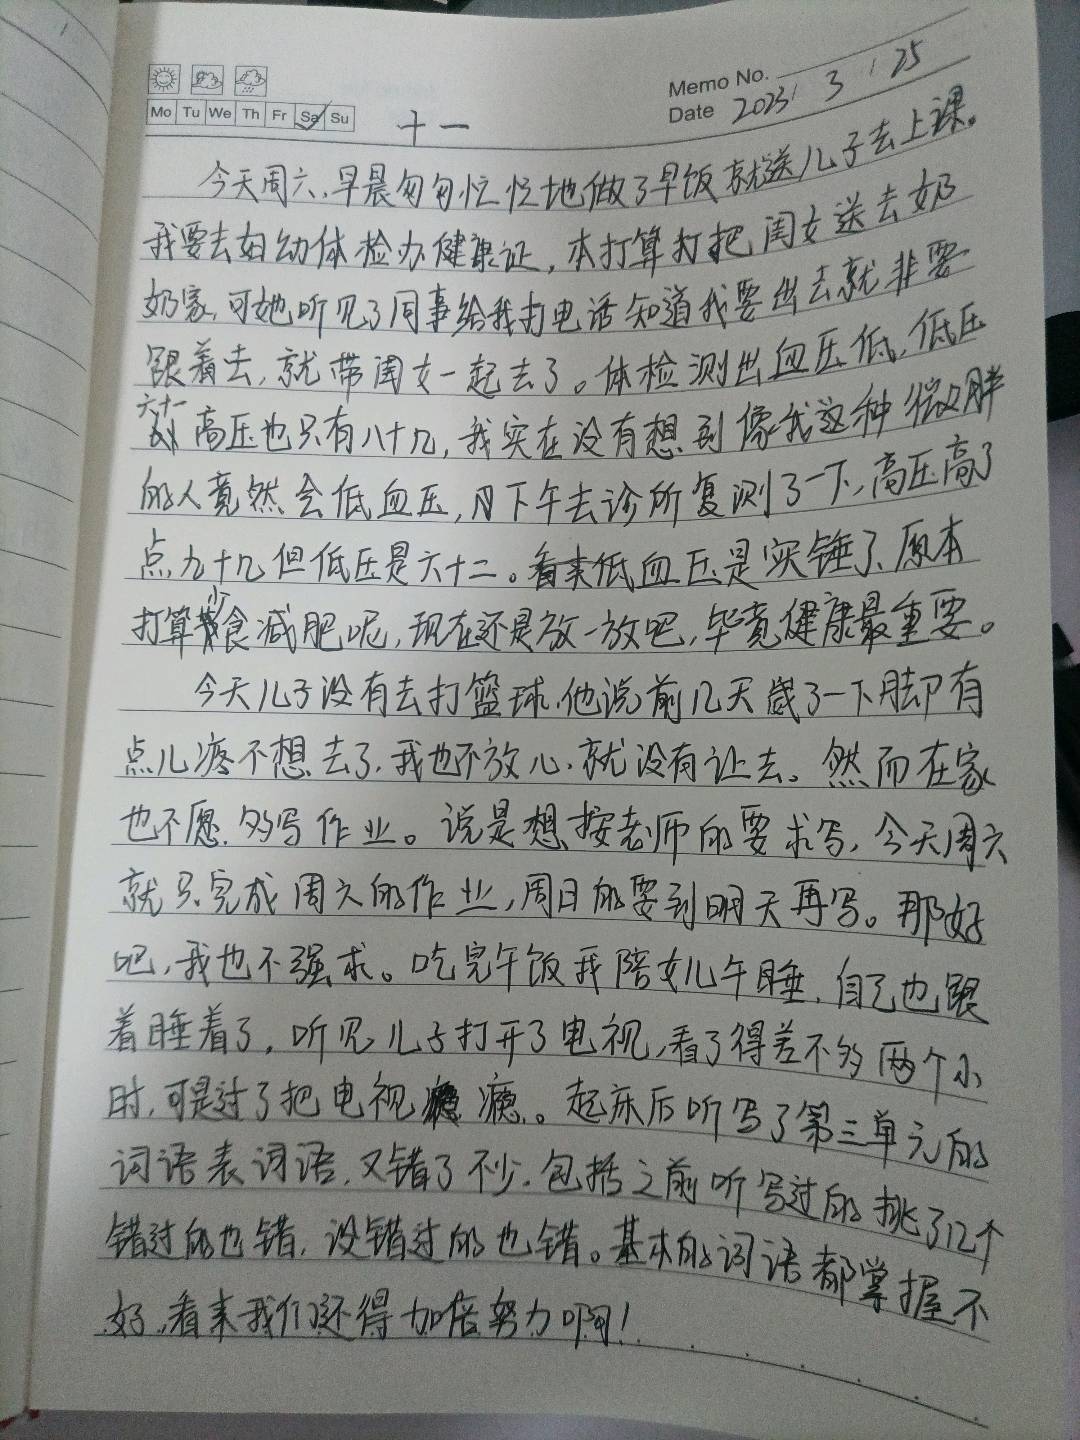 Memo No.
Mo Tu We Th Fr Sa Su
Date 2023 / 3 / 25
十一
今天周六,早晨匆匆忙忙地做了早饭就送儿子去上课。
我要去妇幼体检办健康证,本打算打把闺女送去奶
奶家,可她听见了同事给我打电话知道我要出去就非要
跟着去,就带闺女一起去了。体检测出血压低,低压
六十一
高压也只有八十九,我实在没有想到像我这种微胖
的人竟然会低血压,月下午去诊所复测了一下,高压高了
点九十九但低压是六十二。看来低血压是实锤了、原本
打算少食减肥呢,现在还是放一放吧,毕竟健康最重要。
今天儿子没有去打篮球,他说前几天崴了一下脚有
点儿疼不想去了,我也不放心,就没有让去。然而在家
也不愿多写作业。说是想按老师的要求写,今天周六
就只完成周六的作业,周日的要到明天再写。那好
吧,我也不强求。吃完午饭我陪女儿午睡,自己也跟
着睡着了,听见儿子打开了电视,看了得差不多两个小
时,可是过了把电视瘾。起床后听写了第三单元的
词语表词语,又错了不少,包括之前听写过的挑了12个
错过的也错,没错过的也错。基本的词语都掌握不
好,看来我们还得加倍努力啊!